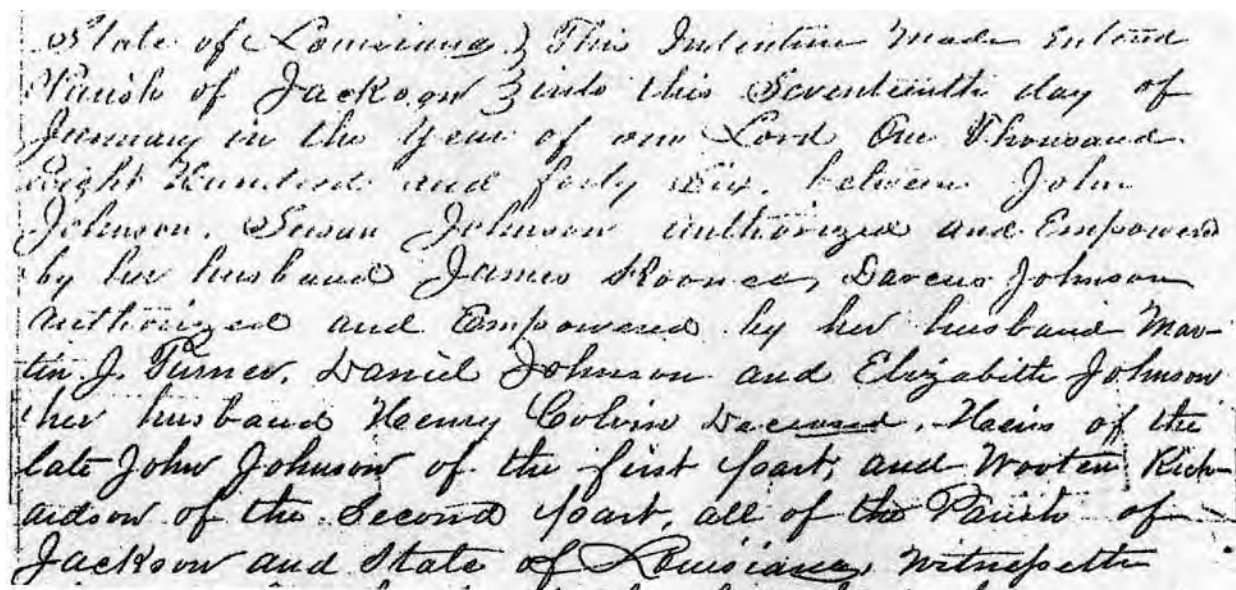 State of Louisiana } This Indenture made entered
Parish of Jackson } into this Seventeenth day of
January in the Year of our Lord One Thousand
Eight Hundred and forty Six, between John
Johnson, Susan Johnson authorized and Empowered
by her husband James Koonce, Darcus Johnson
authorized and Empowered by her husband Mar-
tin J. Turner, Daniel Johnson and Elizabeth Johnson
her husband Henry Colvin Deceased, Heirs of the
late John Johnson of the first part, and Wooten Rich-
ardson of the Second part, all of the Parish of
Jackson and State of Louisiana, Witnesseth